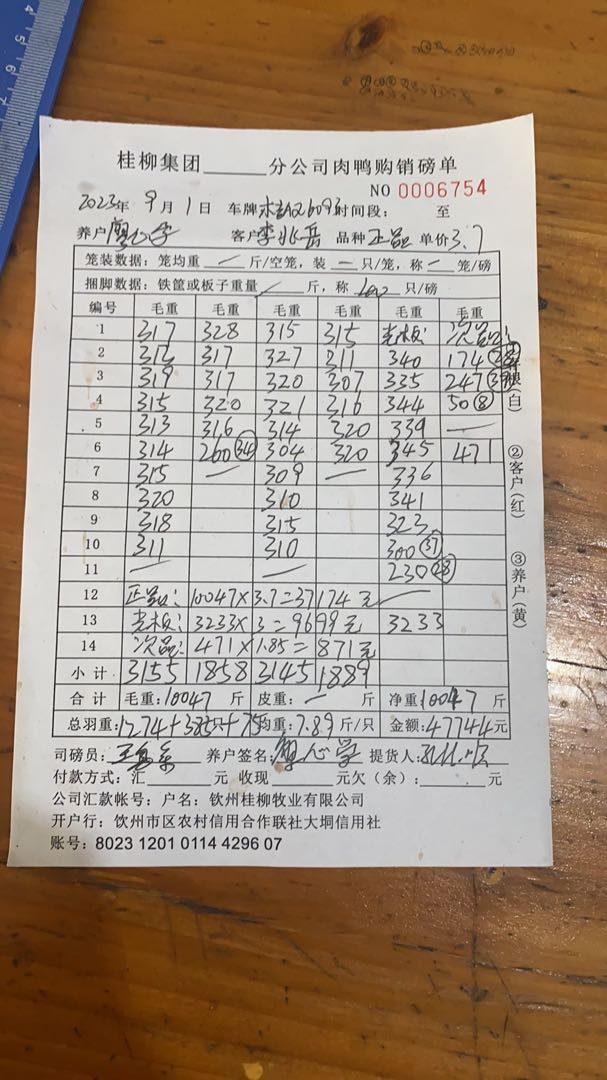 桂柳集团______分公司肉鸭购销磅单
NO 0006754
2023年 9月 1日 车牌 时间段: 至
养户 廖心学 客户 李兆岳 品种 正品 单价 3.7
笼装数据：笼均重 — 斤/空笼，装 — 只/笼，称 — 笼/磅
捆脚数据：铁筐或板子重量 / 斤，称 只/磅
编号 毛重 毛重 毛重 毛重 毛重 毛重
1 317 328 315 315 老板: 次品:
2 313 317 327 311 340 174
3 319 317 320 307 335 247
4 315 320 321 316 344 50⑧
5 313 316 314 320 339 —
6 314 260(34) 304 320 345 471
7 315 — 309 — 336
8 320 310 341
9 318 315 323
10 311 310 300(37)
11 — — 230(28)
12 正品: 10047×3.7=37174元 —
13 老板: 3233×3=9699元 3233
14 次品: 471×1.85=871元
小计 3155 1858 3145 1889
合计 毛重:10047 斤 皮重: — 斤 净重:10047 斤
总羽重:1274+385只+75 均重:7.89 斤/只 金额:47744元
司磅员: 养户签名: 廖心学 提货人:
付款方式：汇______元 收现______元欠（余）：______元
公司汇款帐号：户名：钦州桂柳牧业有限公司
开户行：饮州市区农村信用合作联社大垌信用社
账号：8023 1201 0114 4296 07
(白)
②客户(红)
③养户(黄)